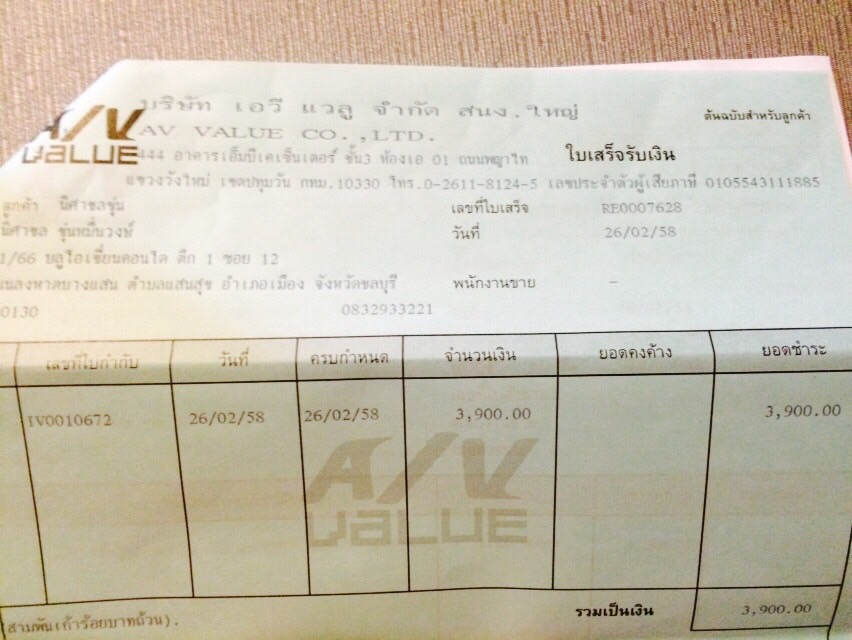 A/V VALUE
บริษัท เอวี แวลู จำกัด สนง.ใหญ่
ต้นฉบับสำหรับลูกค้า
AV VALUE CO.,LTD.
444 อาคารเอ็มบีเคเซ็นเตอร์ ชั้น3 ห้องเอ 01 ถนนพญาไท
ใบเสร็จรับเงิน
แขวงวังใหม่ เขตปทุมวัน กทม.10330 โทร.0-2611-8124-5 เลขประจำตัวผู้เสียภาษี 0105543111885
ลูกค้า นิศาชลขุ่น เลขที่ใบเสร็จ RE0007628
นิศาชล ขุ่นหมื่นวงษ์ วันที่ 26/02/58
1/66 บลูโอเชี่ยนคอนโด ตึก 1 ซอย 12
นนลงหาดบางแสน ตำบลแสนสุข อำเภอเมือง จังหวัดชลบุรี พนักงานขาย -
0130 0832933221
เลขที่ใบกำกับ วันที่ ครบกำหนด จำนวนเงิน ยอดคงค้าง ยอดชำระ
IV0010672 26/02/58 26/02/58 3,900.00 3,900.00
A/V VALUE
(สามพันเก้าร้อยบาทถ้วน). รวมเป็นเงิน 3,900.00